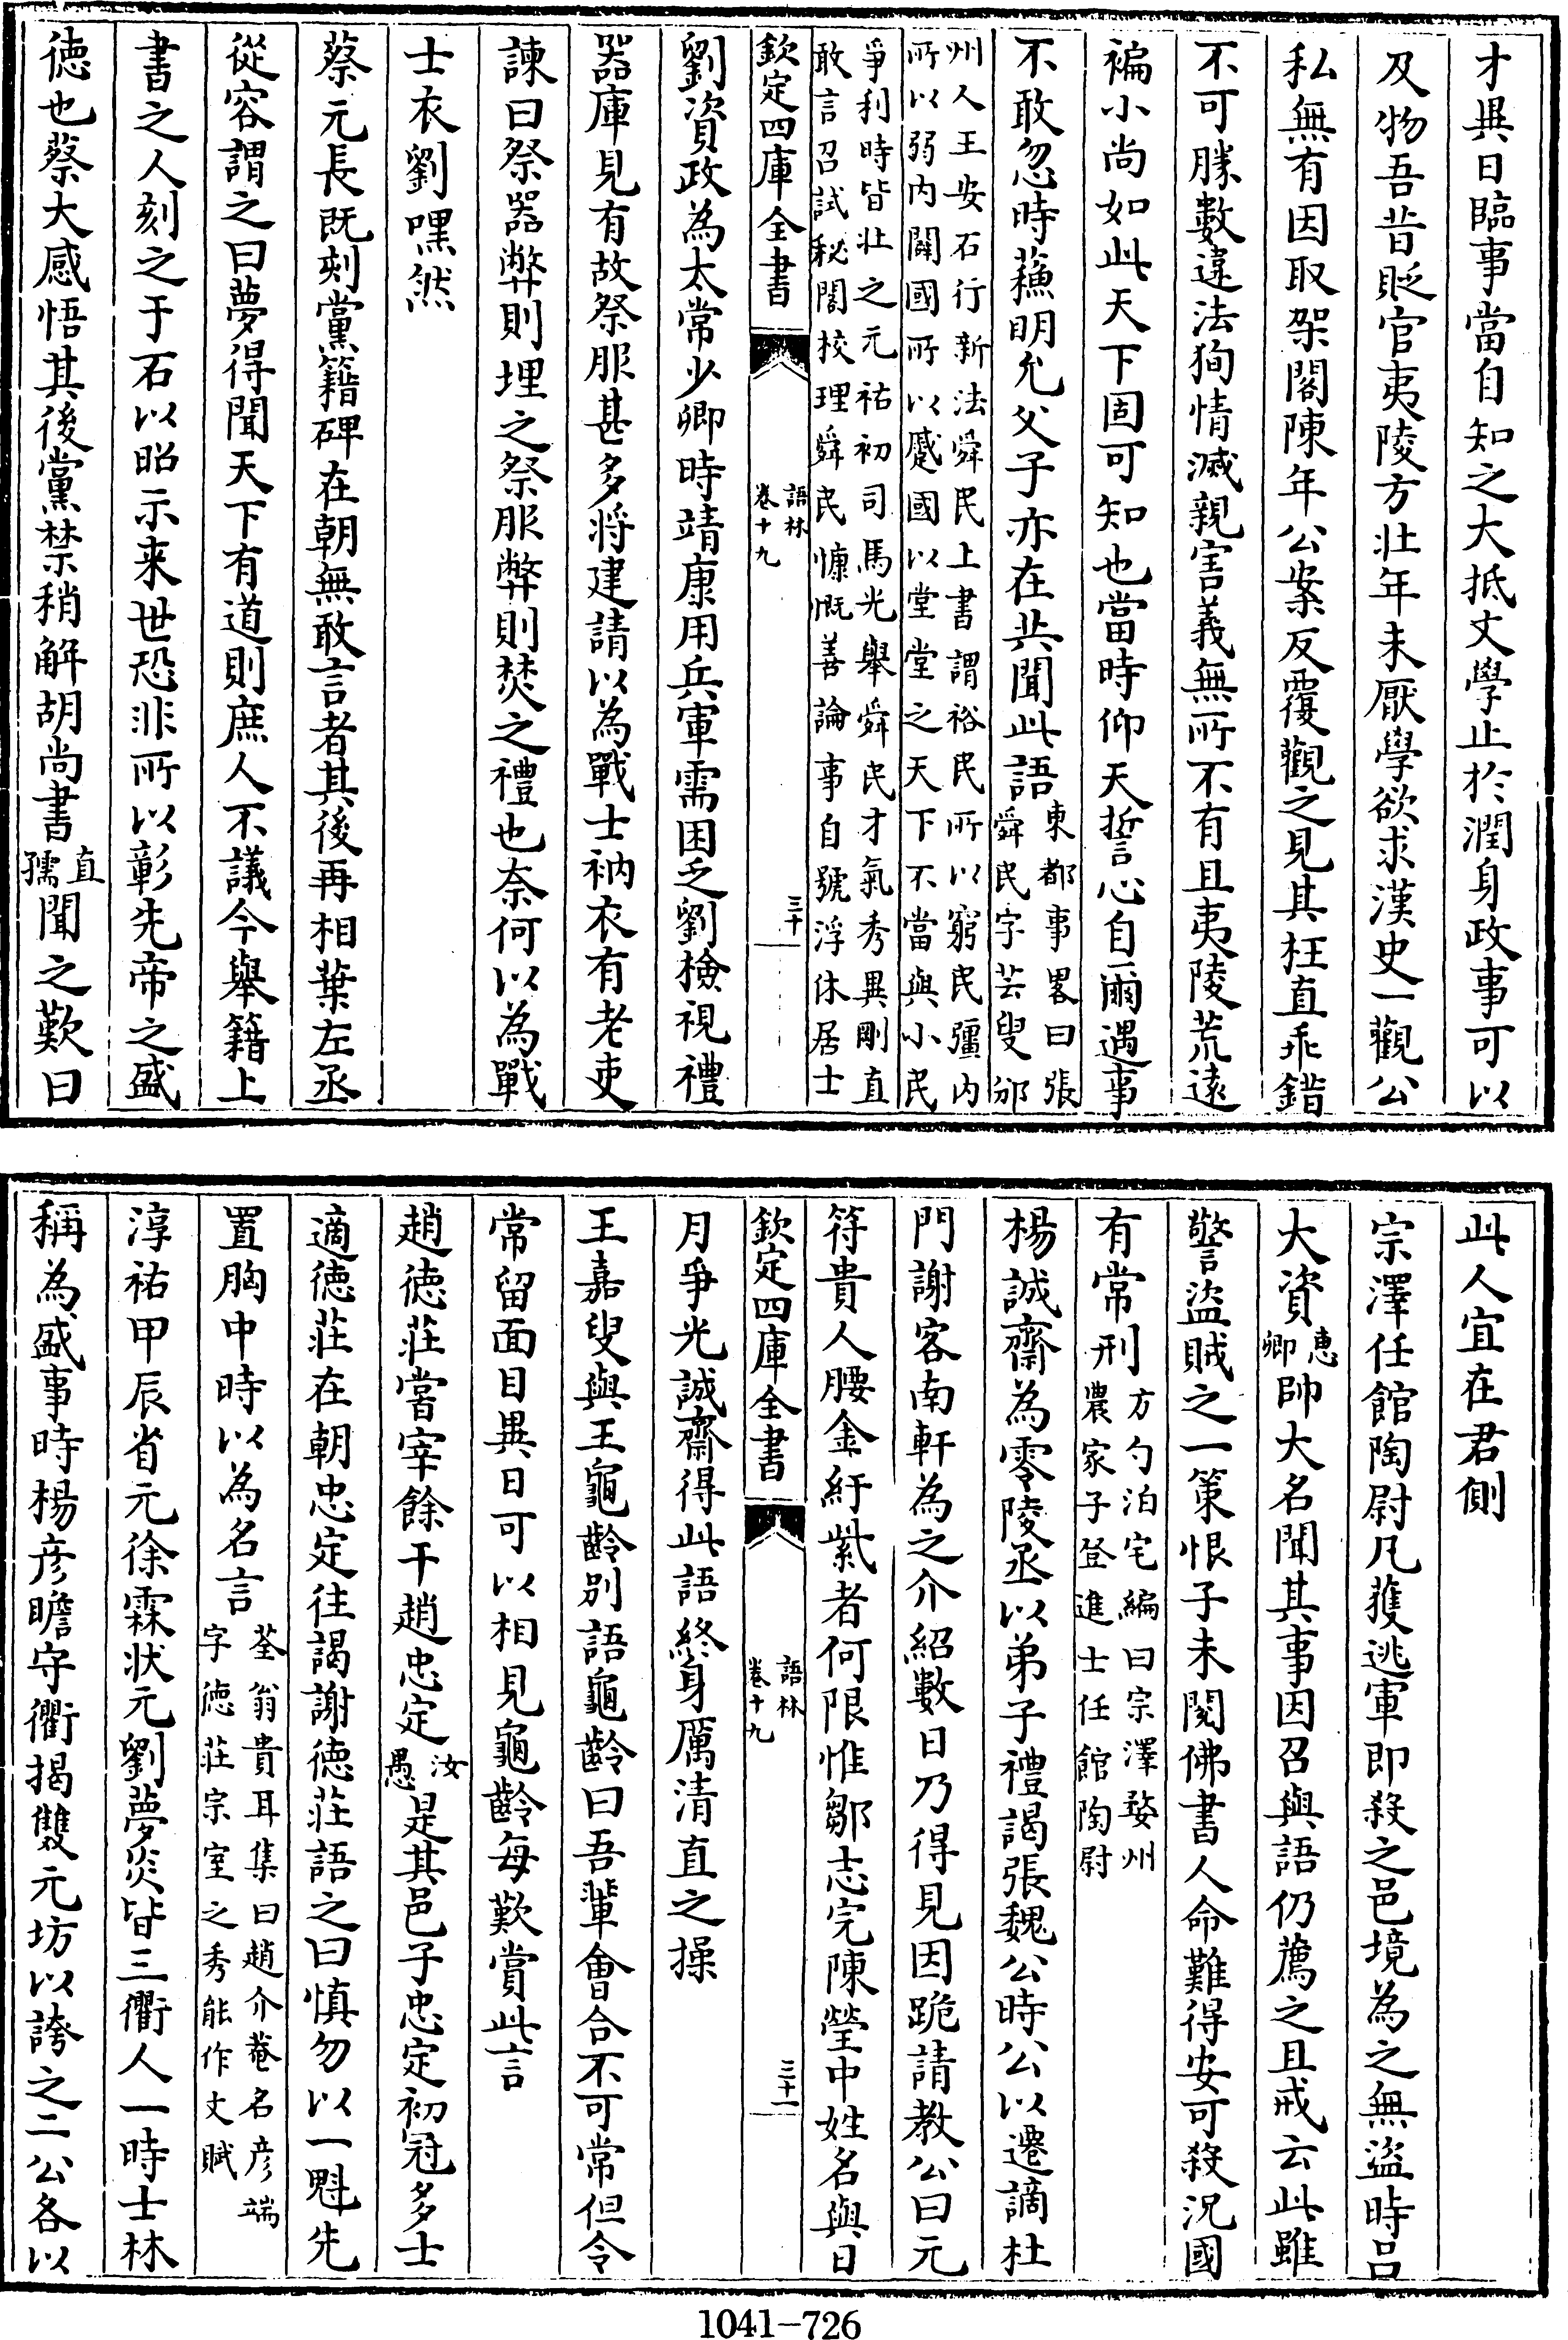 才異日臨事當自知之大抵文學止於潤身政事可以
及物吾昔貶官夷陵方壯年未厭學欲求漢史一觀公
私無有因取架閣陳年公案反覆觀之見其枉直乖錯
不可勝數違法狥情滅親害義無所不有且夷陵荒逺
褊小尚如此天下固可知也當時仰天誓心自爾遇事
不敢忽時蘓明允父子亦在共聞此語東都事畧曰張
舜民字芸叟邠
州人王安石行新法舜民上書謂裕民所以窮民彊内
所以弱内闢國所以蹙國以堂堂之天下不當與小民
爭利時皆壯之元祐初司馬光舉舜民才氣秀異剛直
敢言召試秘閣校理舜民慷慨善論事自號浮休居士
欽定四庫全書
語林
卷十九
三十
劉資政為太常少卿時靖康用兵軍需困乏劉檢視禮
器庫見有故祭服甚多将建請以為戰士衲衣有老吏
諫曰祭器弊則埋之祭服弊則焚之禮也奈何以為戰
士衣劉嘿然
蔡元長既刻黨籍碑在朝無敢言者其後再相葉左丞
從容謂之曰夢得聞天下有道則庶人不議今舉籍上
書之人刻之于石以昭示来世恐非所以彰先帝之盛
徳也蔡大感悟其後黨禁稍解胡尚書直
孺聞之歎曰
此人宜在君側
宗澤任館陶尉凡獲逃軍即殺之邑境為之無盜時吕
大資恵
卿帥大名聞其事因召與語仍薦之且戒云此雖
警盜賊之一策恨子未閱佛書人命難得安可殺況國
有常刑方勺泊宅編曰宗澤婺州
農家子登進士任館陶尉
楊誠齋為零陵丞以弟子禮謁張魏公時公以遷謫杜
門謝客南軒為之介紹數日乃得見因跪請教公曰元
符貴人腰金紆紫者何限惟鄒志完陳瑩中姓名與日
欽定四庫全書
語林
卷十九
三十一
月爭光誠齋得此語終身厲清直之操
王嘉叟與王龜齡别語龜齡曰吾輩會合不可常但令
常留面目異日可以相見龜齡每歎賞此言
趙徳莊嘗宰餘干趙忠定汝
愚是其邑子忠定初冠多士
適徳莊在朝忠定往謁謝徳莊語之曰慎勿以一魁先
置胸中時以為名言荃翁貴耳集曰趙介菴名彦端
字徳莊宗室之秀能作文賦
淳祐甲辰省元徐霖状元劉夢炎皆三衢人一時士林
稱為盛事時楊彦瞻守衢揭雙元坊以誇之二公各以
1041-726